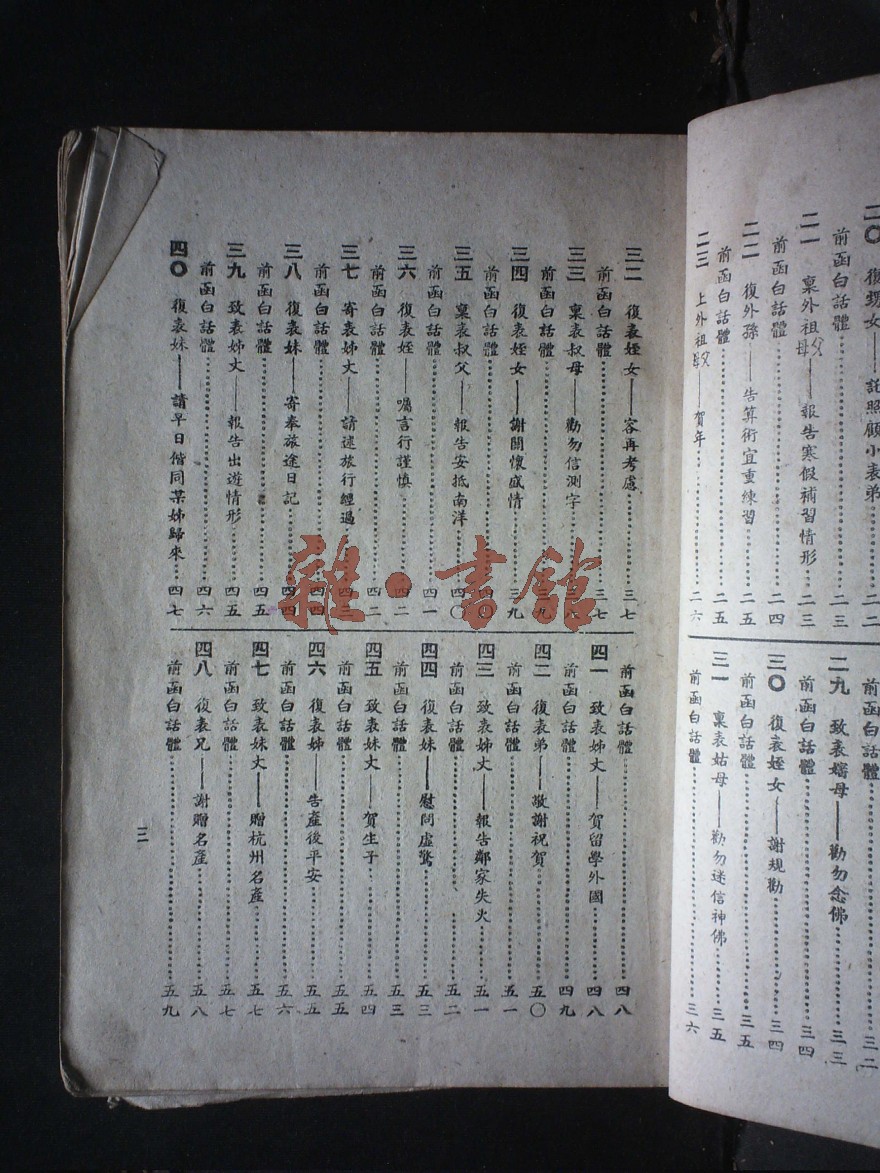 二〇 復甥女——託照顧小表弟……二二
前函白話體……二三
二一 稟外祖父母——報告寒假補習情形……二三
前函白話體……二四
二二 復外孫——告算術宜重練習……二五
前函白話體……二五
二三 上外祖父母——賀年……二六
前函白話體……三二
二九 致表嬸母——勸勿念佛……三三
前函白話體……三四
三〇 復表姪女——謝規勸……三四
前函白話體……三五
三一 稟表姑母——勸勿迷信神佛……三五
前函白話體……三六
三二 復表姪女——容再考慮……三七
前函白話體……三七
三三 稟表叔母——勸勿信測字……
前函白話體……
三四 復表姪女——謝關懷盛情……三九
前函白話體……
三五 稟表叔父——報告安抵南洋……四〇
前函白話體……四一
三六 復表姪——囑言行謹慎……四二
前函白話體……四二
三七 寄表姊丈——請述旅行經過……四三
前函白話體……四四
三八 復表妹——寄奉旅途日記……四四
前函白話體……四五
三九 致表姊丈——報告出遊情形……四五
前函白話體……四六
四〇 復表妹——請早日偕同某姊歸來……四七
前函白話體……四八
四一 致表姊丈——賀留學外國……四八
前函白話體……四九
四二 復表弟——敬謝祝賀……五〇
前函白話體……五一
四三 致表姊丈——報告鄰家失火……五一
前函白話體……五二
四四 復表妹——慰問虛驚……五三
前函白話體……五三
四五 致表妹丈——賀生子……五四
前函白話體……五五
四六 復表姊——告產後平安……五五
前函白話體……五六
四七 致表妹丈——贈杭州名產……五七
前函白話體……五七
四八 復表兄——謝贈名產……五八
前函白話體……五九
三
雜·書館